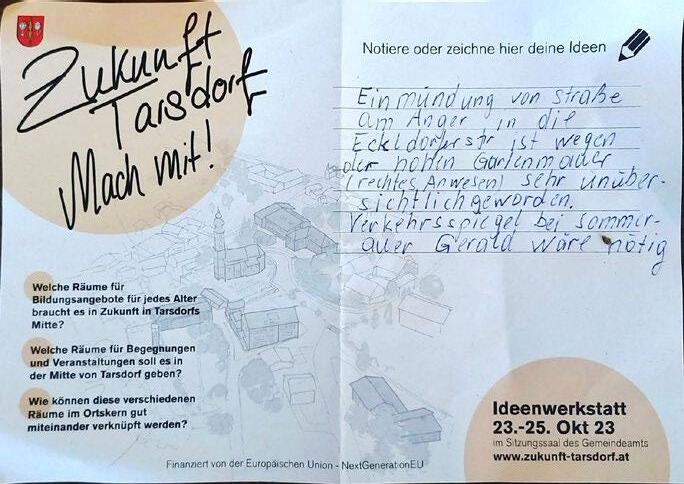 Zukunft
Tarsdorf
Mach mit!
Welche Räume für
Bildungsangebote für jedes Alter
braucht es in Zukunft in Tarsdorfs
Mitte?
Welche Räume für Begegnungen
und Veranstaltungen soll es in
der Mitte von Tarsdorf geben?
Wie können diese verschiedenen
Räume im Ortskern gut
miteinander verknüpft werden?
Notiere oder zeichne hier deine Ideen
Einmündung von Straße
am Anger in die
Eckldorferstr ist wegen
der hohen Gartenmauer
(rechtes Anwesen) sehr unüber-
sichtlich geworden.
Verkehrsspiegel bei Sommer-
auer Gerald wäre nötig
Ideenwerkstatt
23.-25. Okt 23
im Sitzungssaal des Gemeindeamts
www.zukunft-tarsdorf.at
Finanziert von der Europäischen Union - NextGenerationEU